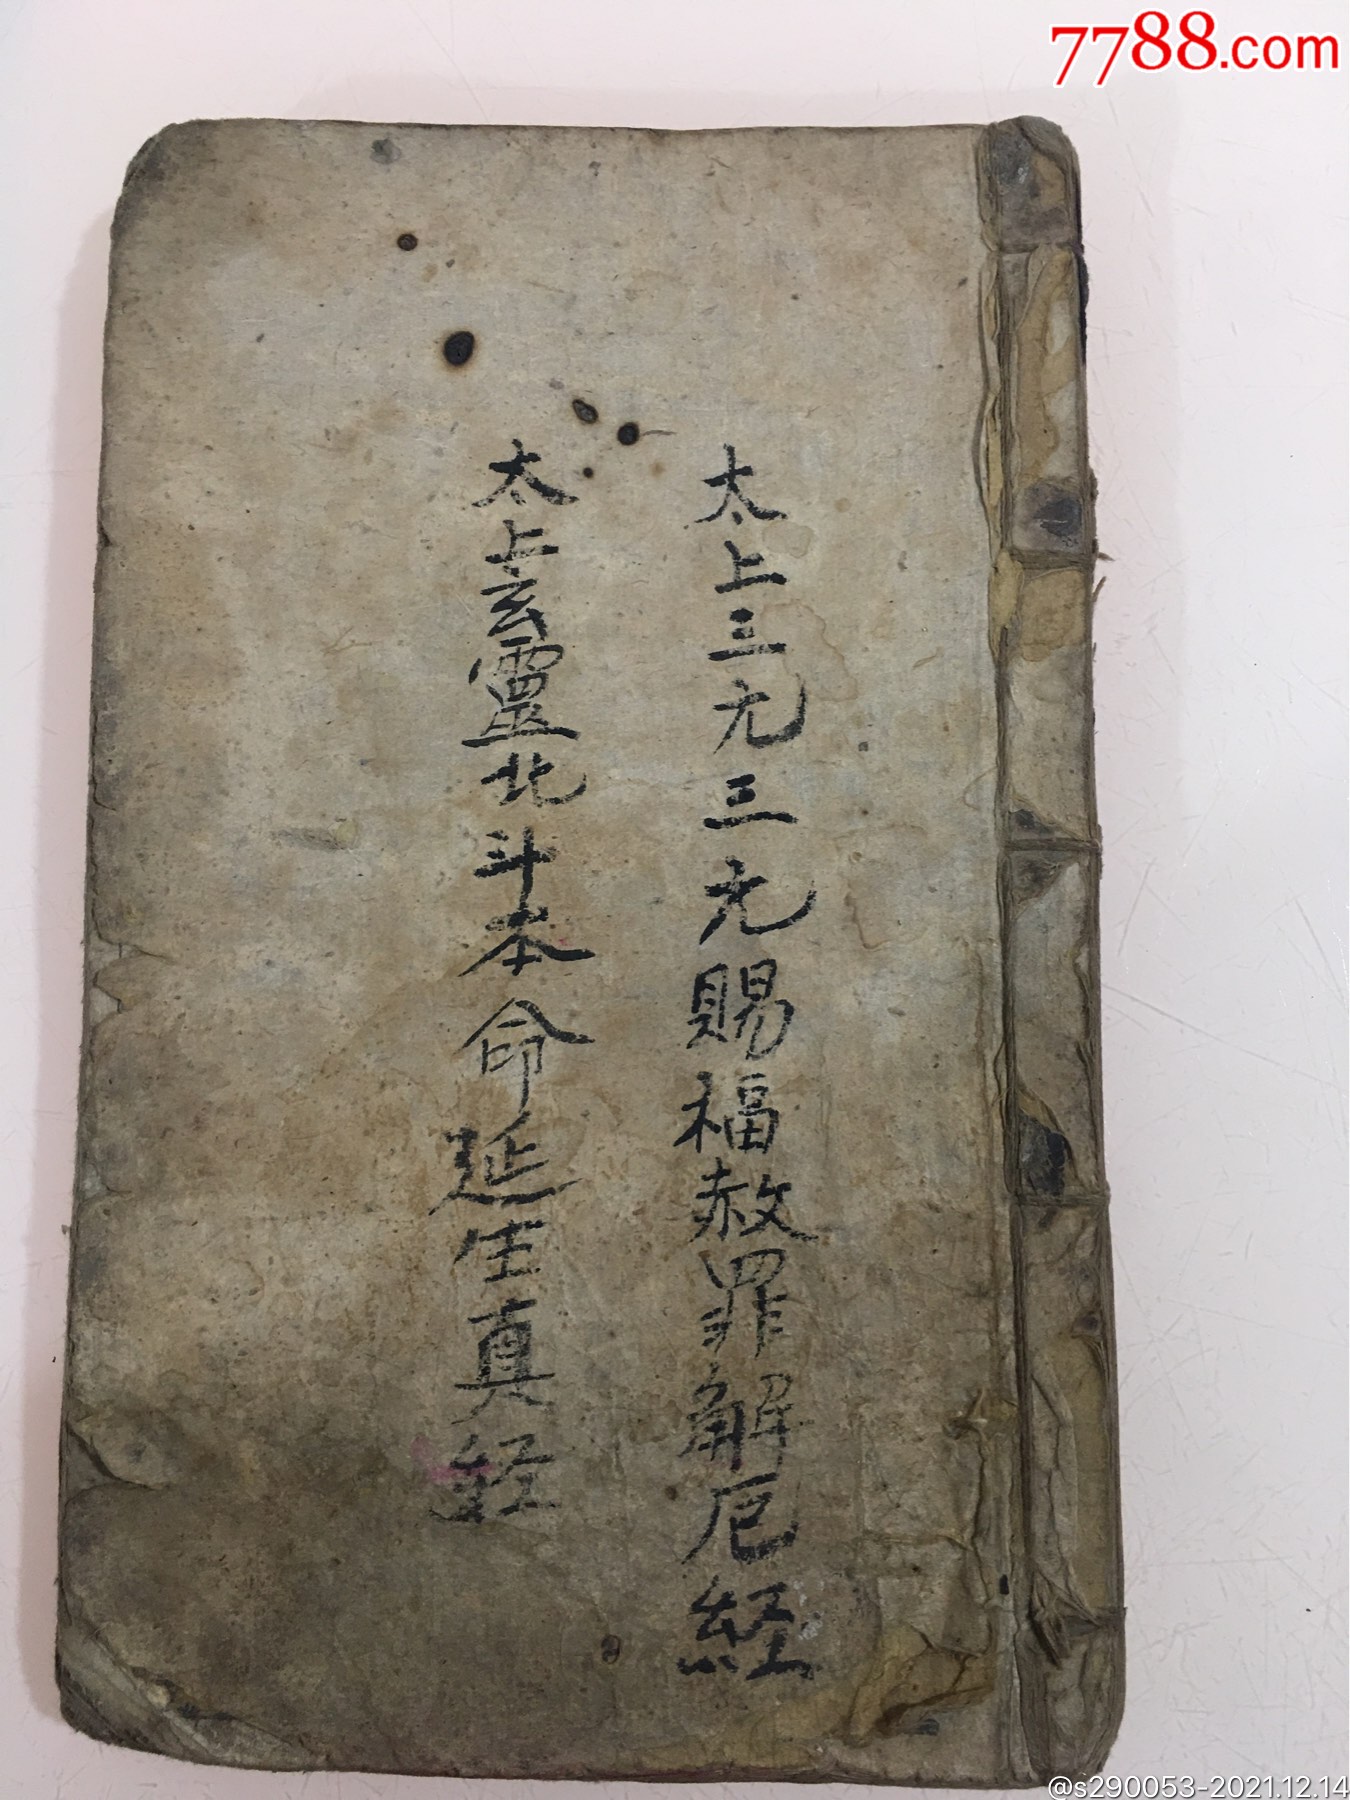 7788.com
太上三元三元賜福赦罪解厄経
太上玄靈北斗本命延生真経
@s290053-2021.12.14